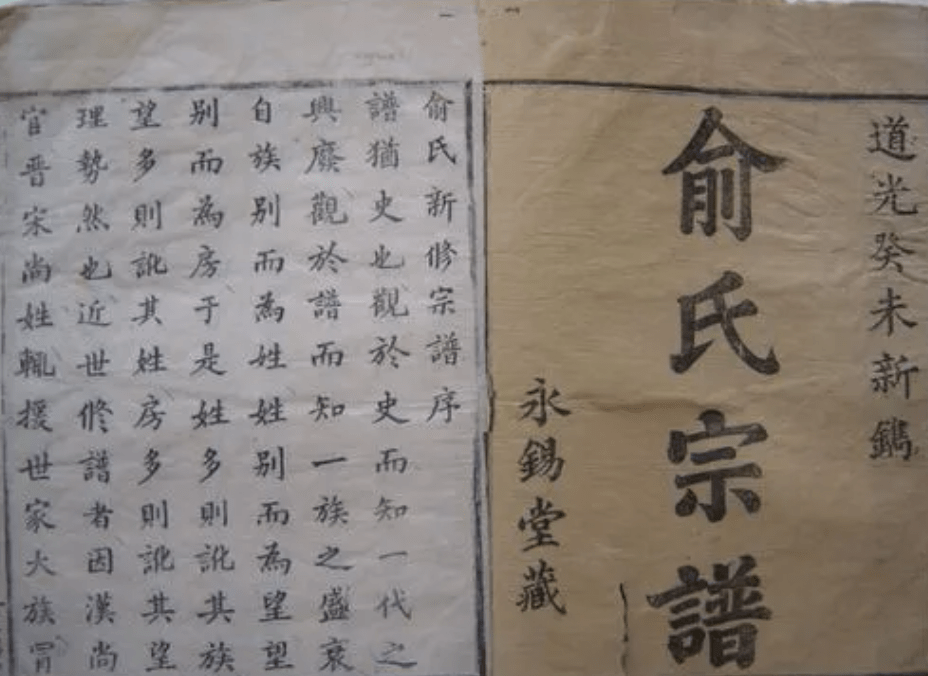 道光癸未新鐫
俞氏宗譜
永錫堂藏
俞氏新修宗譜序
譜猶史也觀於史而知一代之
興廢觀於譜而知一族之盛衰
自族別而為姓姓別而為望望
別而為房于是姓多則訛其族
望多則訛其姓房多則訛其望
理勢然也近世修譜者因漢尚
官晋宋尚姓輒援世家大族冒